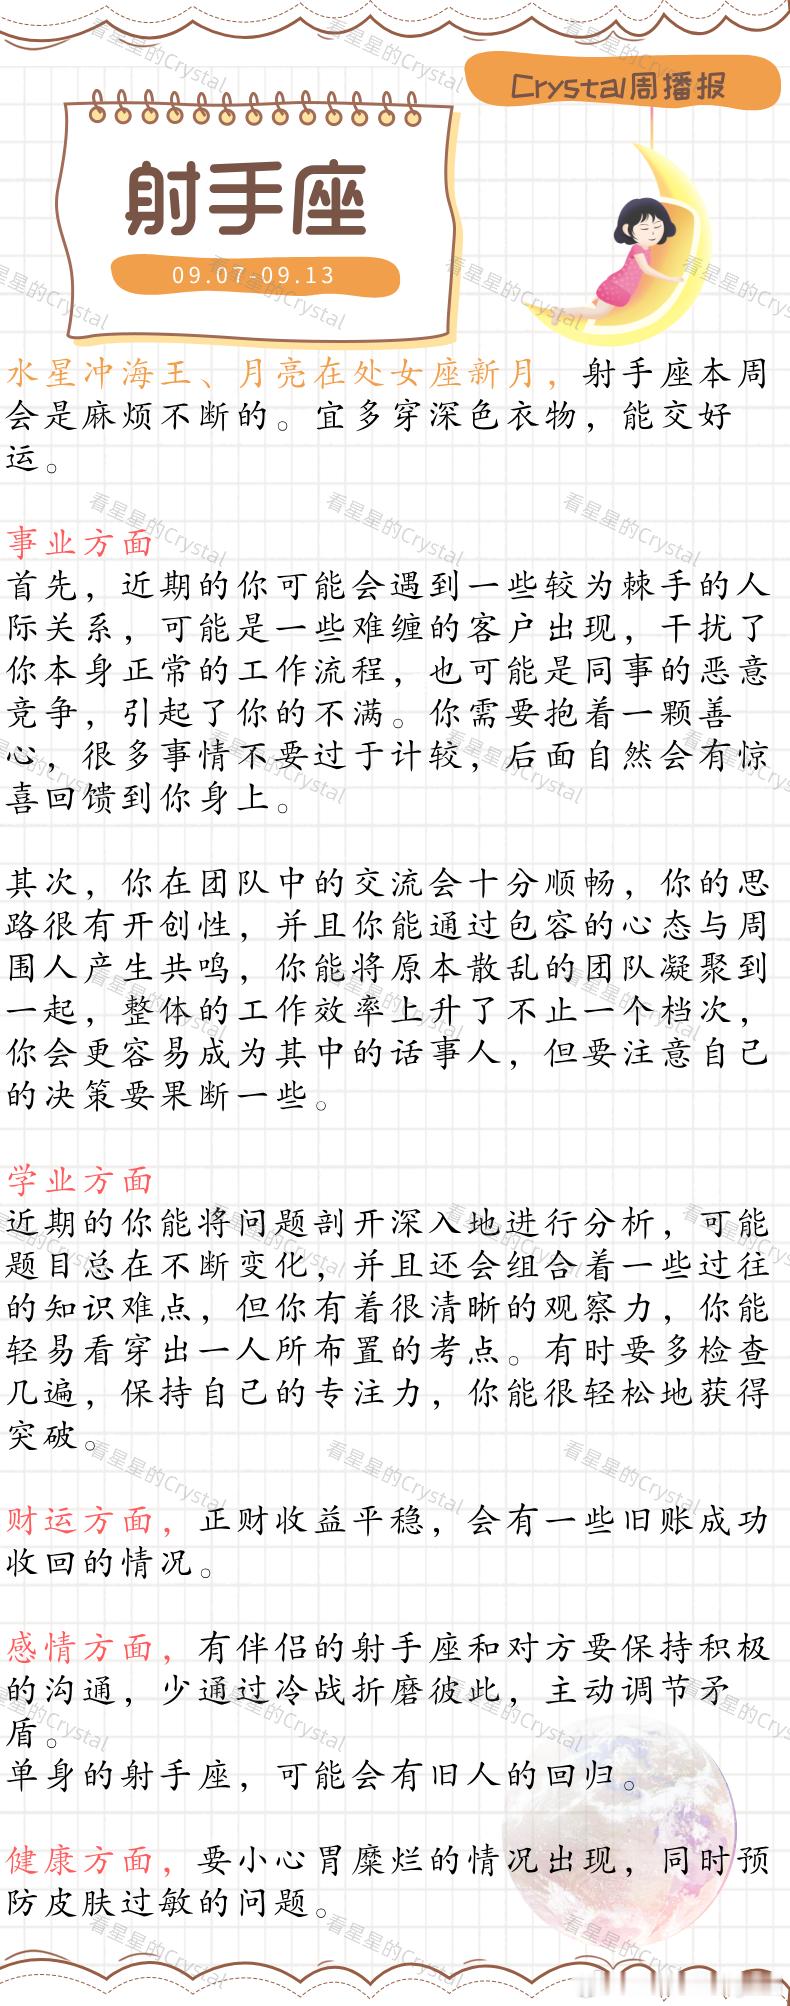 Crystal周播报
射手座
09.07-09.13
水星冲海王、月亮在处女座新月，射手座本周
会是麻烦不断的。宜多穿深色衣物，能交好
运。
事业方面
首先，近期的你可能会遇到一些较为棘手的人
际关系，可能是一些难缠的客户出现，干扰了
你本身正常的工作流程，也可能是同事的恶意
竞争，引起了你的不满。你需要抱着一颗善
心，很多事情不要过于计较，后面自然会有惊
喜回馈到你身上。
其次，你在团队中的交流会十分顺畅，你的思
路很有开创性，并且你能通过包容的心态与周
围人产生共鸣，你能将原本散乱的团队凝聚到
一起，整体的工作效率上升了不止一个档次，
你会更容易成为其中的话事人，但要注意自己
的决策要果断一些。
学业方面
近期的你能将问题剖开深入地进行分析，可能
题目总在不断变化，并且还会组合着一些过往
的知识难点，但你有着很清晰的观察力，你能
轻易看穿出一人所布置的考点。有时要多检查
几遍，保持自己的专注力，你能很轻松地获得
突破。
财运方面，正财收益平稳，会有一些旧账成功
收回的情况。
感情方面，有伴侣的射手座和对方要保持积极
的沟通，少通过冷战折磨彼此，主动调节矛
盾。
单身的射手座，可能会有旧人的回归。
健康方面，要小心胃糜烂的情况出现，同时预
防皮肤过敏的问题。
看星星的Crystal